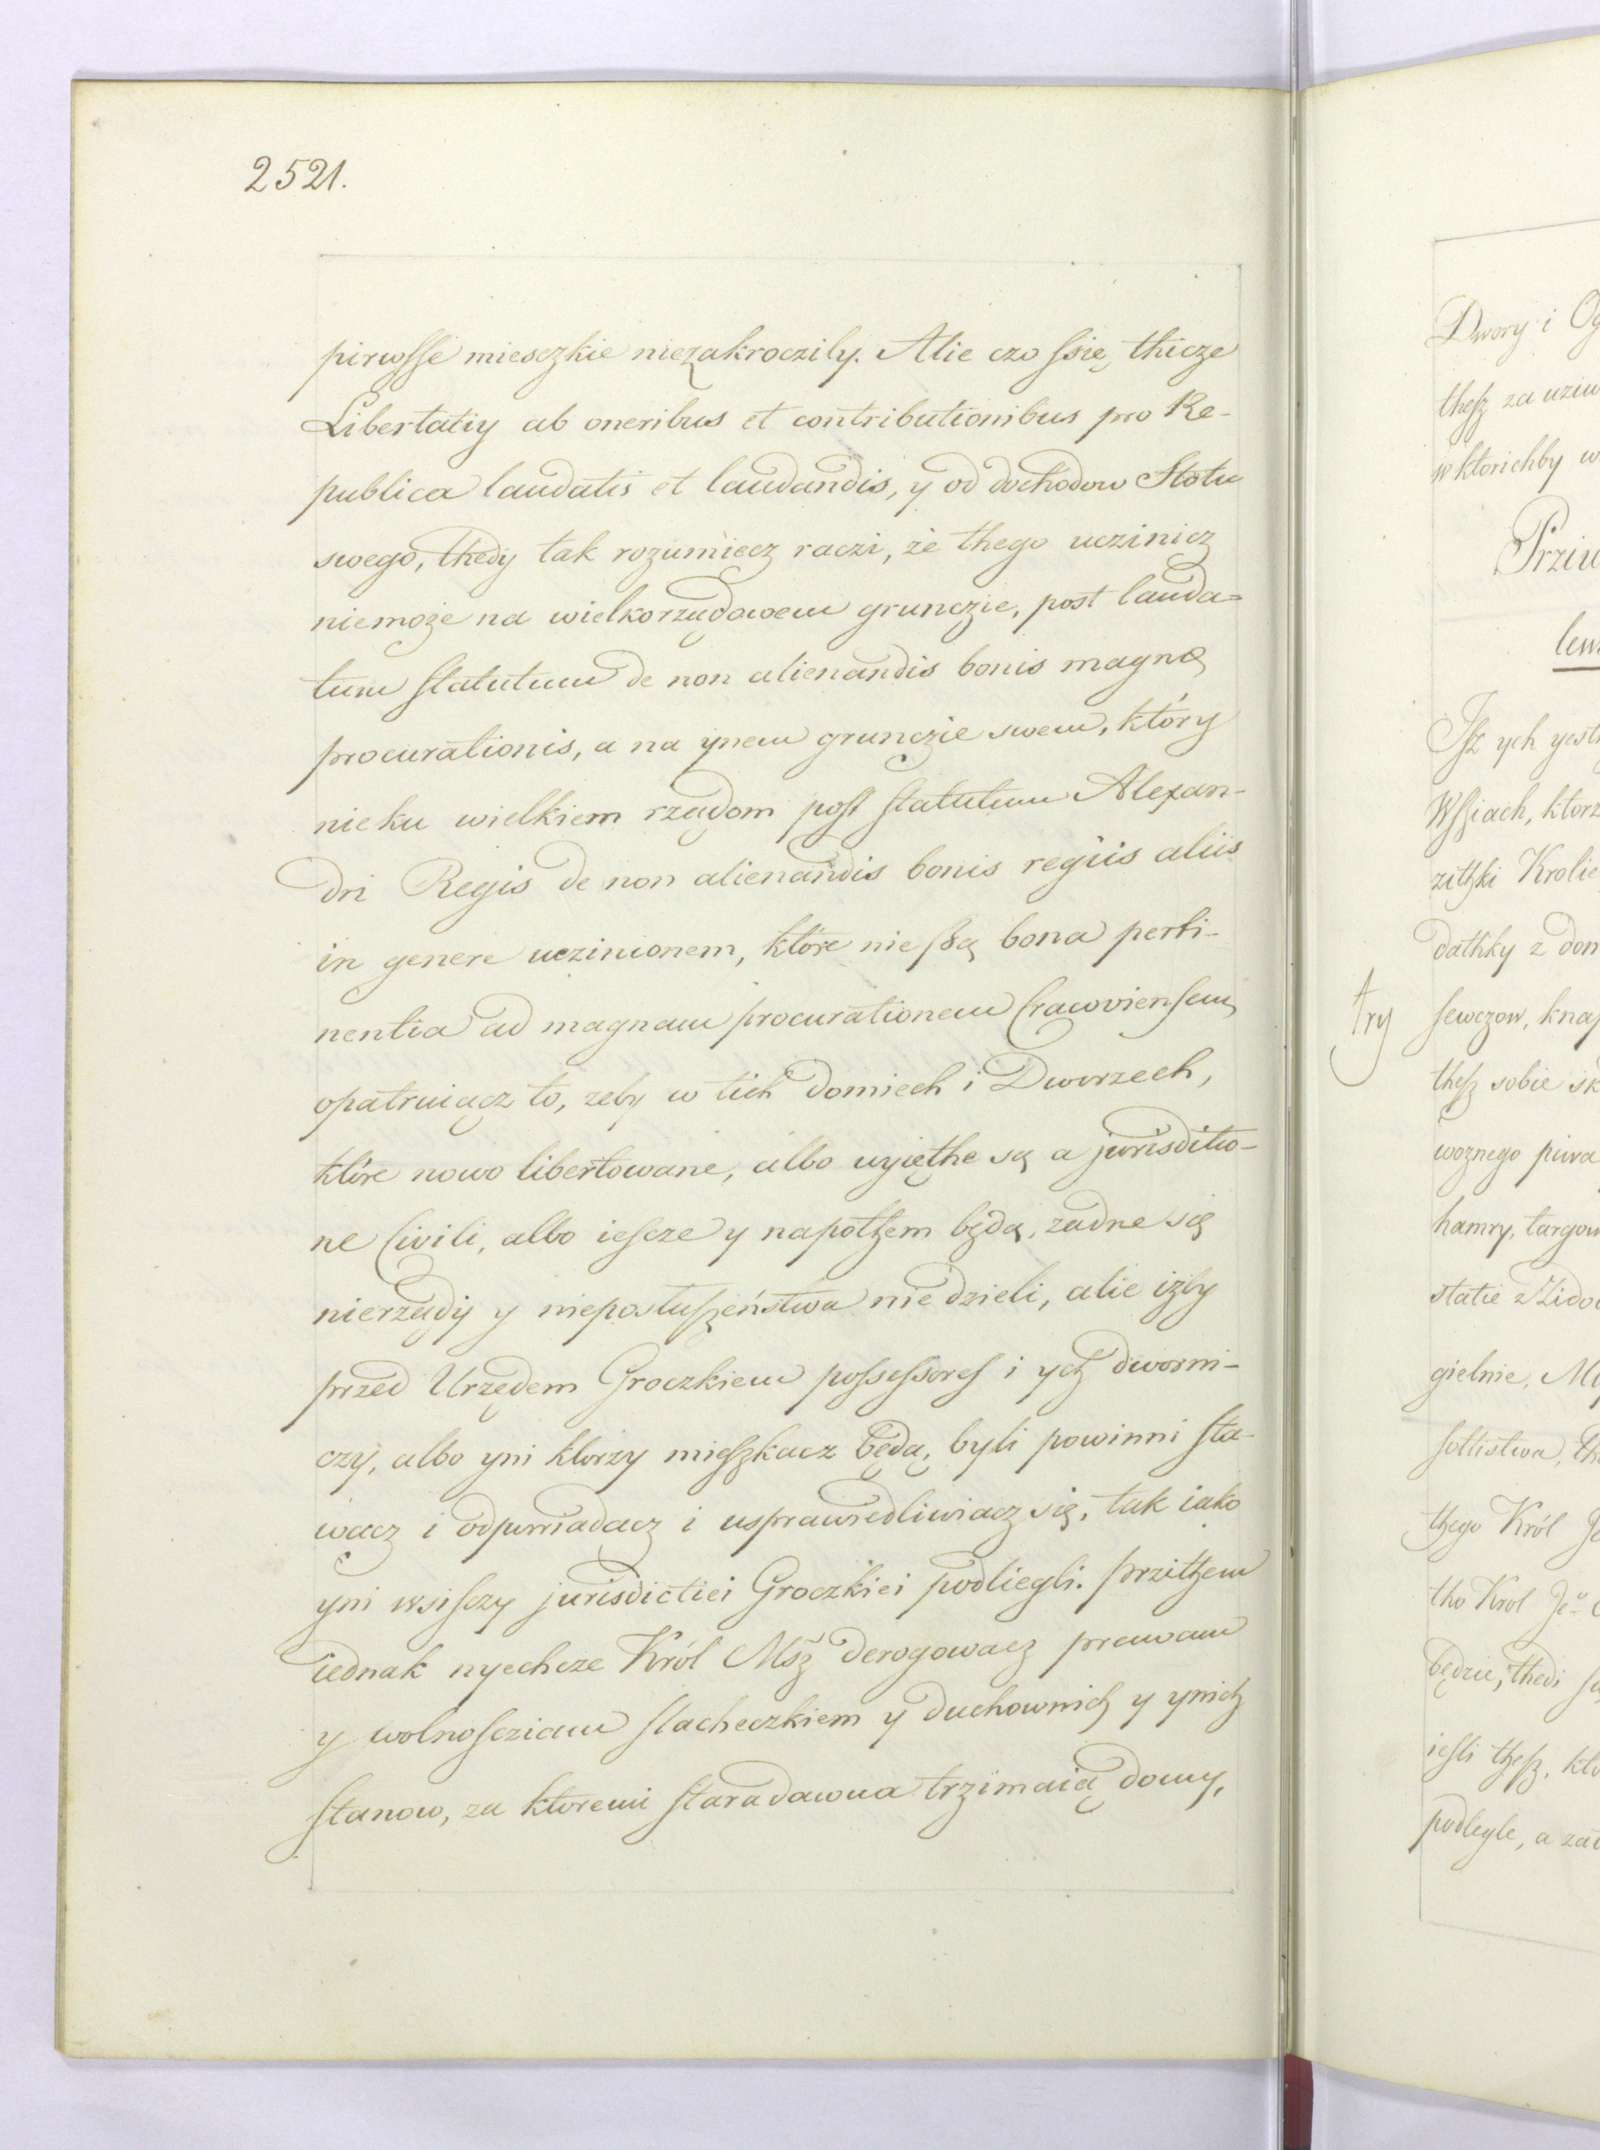 2521.
pirwsse miesczkie niezakroczily. Alie czo ssię thicze
Libertatiy ab oneribus et contributionibus pro Re-
publica laudatis et laudandis, y od dochodow Stolu
swego, thedy tak rozumiecz raczi, że thego uczinicz
niemoże na wielkorządowem grunczie, post lauda=
tum statutum de non alienandis bonis magnæ
procurationis, a na ynem grunczie swem, który
nie ku wielkiem rządom post statutum Alexan-
dri Regis de non alienandis bonis regiis aliis
in genere uczinionem, które nie są bona perti-
nentia ad magnam procurationem Cracoviensem
opatruiącz to, zeby w tich domiech i Dworzech,
które nowo libertowane, albo wyięthe są a jurisditio-
ne Civili, albo iescze y napothem będą, zadne się
nierządy y nieposłuszeństwa nie dzieli, alie iżby
przed Urzędem Groczkiem possessores i ych dworni-
czy, albo yni którzy mieszkacz będą, byli powinni sta-
wacz i odpowiadacz i usprawiedliwiacz się, tak iako
yni wsisczy jurisdictiei Groczkiei podliegli. Przithem
iednak nyechcze Król Msz derogowacz prawam
y wolnosciam slacheczkiem y duchownich y ynich
stanow, za ktoremi staradawna trzimaią domy,
Dwory i
thesz za
w ktorichby
Isz ych
Wssiach,
Krolie
dathky z
try
sewczow,
thesz sobie
woznego piwa
hamry,
statie
gielnie,
soltistwa,
thego Król
tho Krol
będzie, thedi
iesli thesz,
podlegle, a